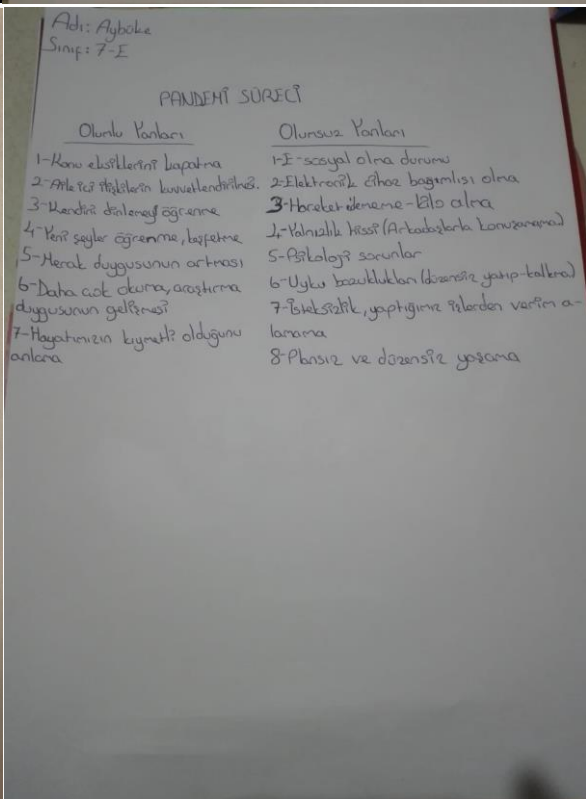 Adı: Aybüke
Sınıf: 7-E
PANDEMİ SÜRECİ
Olumlu Yanları
1-Konu eksiklerini kapatma
2-Aile içi ilişkilerin kuvvetlendirilmesi.
3-Kendini dinlemeyi öğrenme
4-Yeni şeyler öğrenme, keşfetme
5-Merak duygusunun artması
6-Daha çok okuma, araştırma
duygusunun gelişmesi
7-Hayatımızın kıymetli olduğunu
anlama
Olumsuz Yanları
1-E-sosyal olma durumu
2-Elektronik cihaz bağımlısı olma
3-Hareket edememe-kilo alma
4-Yalnızlık hissi (Arkadaşlarla konuşamama)
5-Psikoloji sorunlar
6-Uyku bozuklukları (düzensiz yatıp-kalkma)
7-İsteksizlik, yaptığımız işlerden verim a-
lamama
8-Plansız ve düzensiz yaşama